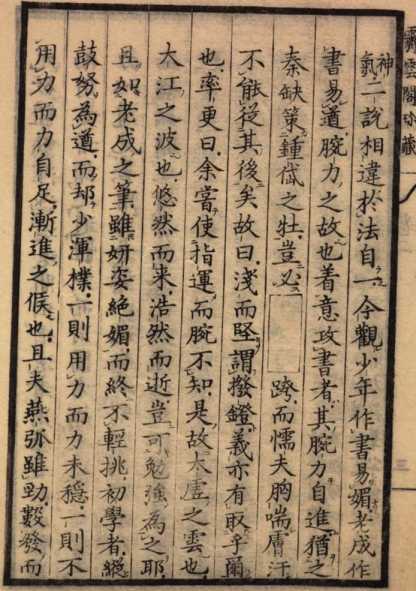 神氣二說相違於法自一今觀少年作書易媚老成作
書易遒腕力之故也着意攻書者其腕力自進猶之
秦缺策鍾岱之牡豈必跨而懦夫胸喘膚汗
不能從其後矣故曰淺而堅謂撥鐙義亦有取乎爾
也率更曰余嘗使指運而腕不知是故太虛之雲也
大江之波也悠然而来浩然而逝豈可勉強為之耶
且如老成之筆雖妍姿絕媚而終不輕挑初學者絕
鼓努為遒而却少渾樸一則用力而力未穩一則不
用力而力自足漸進之候也且夫燕弧雖勁彀發而